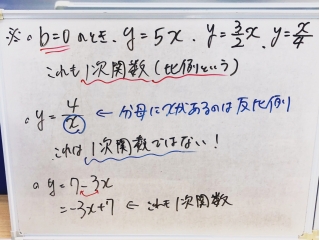 ※ ○ b=0 のとき、y=5x、y=3/2x、y=x/4
これも1次関数(比例という)
○ y=4/x ← 分母にxがあるのは反比例
これは1次関数ではない!
○ y=7-3x
=-3x+7 ← これも1次関数